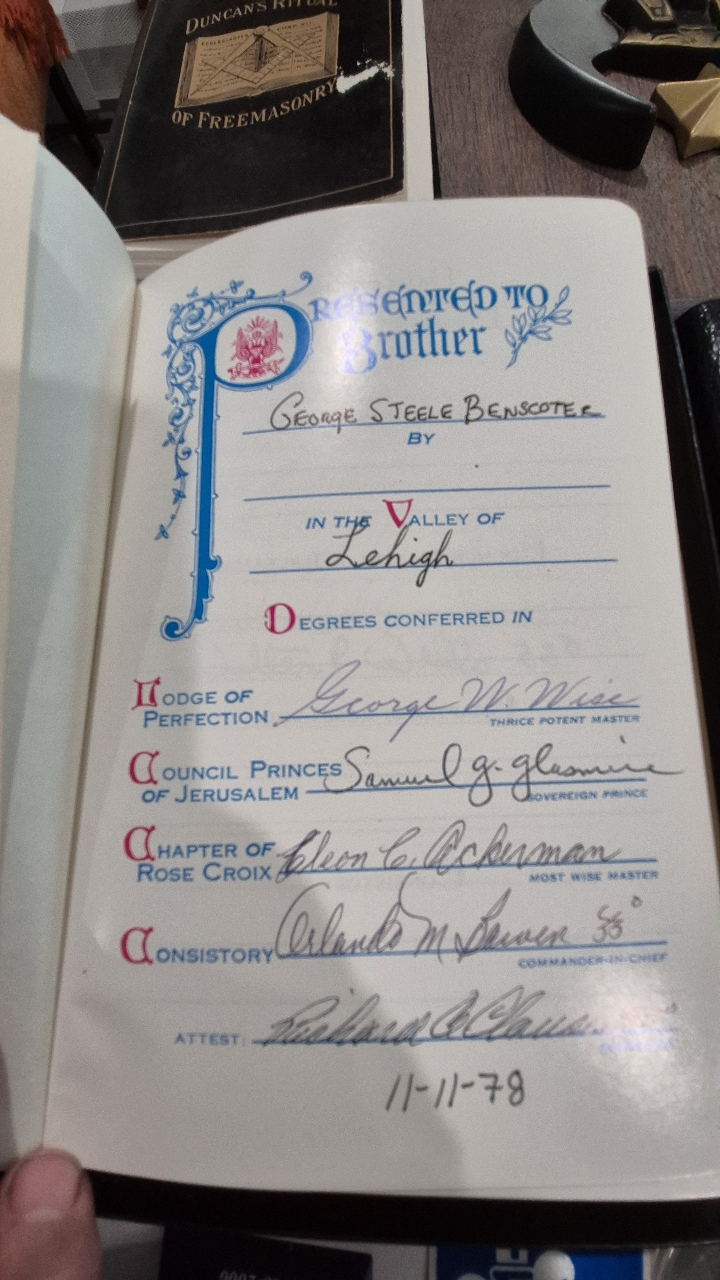 DUNCAN'S RITUAL
OF FREEMASONRY
PRESENTED TO
Brother
GEORGE STEELE BENSCOTER
BY
IN THE VALLEY OF
Lehigh
DEGREES CONFERRED IN
LODGE OF
PERFECTION George W. Wise
THRICE POTENT MASTER
COUNCIL PRINCES
OF JERUSALEM Samuel G.
SOVEREIGN PRINCE
CHAPTER OF
ROSE CROIX Cleon C. Ackerman
MOST WISE MASTER
CONSISTORY Orlando M 33°
COMMANDER-IN-CHIEF
ATTEST: Richard
11-11-78